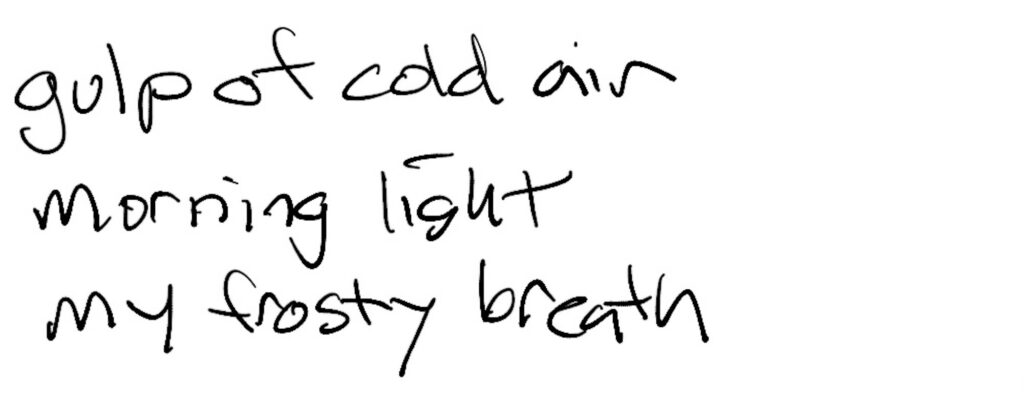 gulp of cold air
morning light
my frosty breath